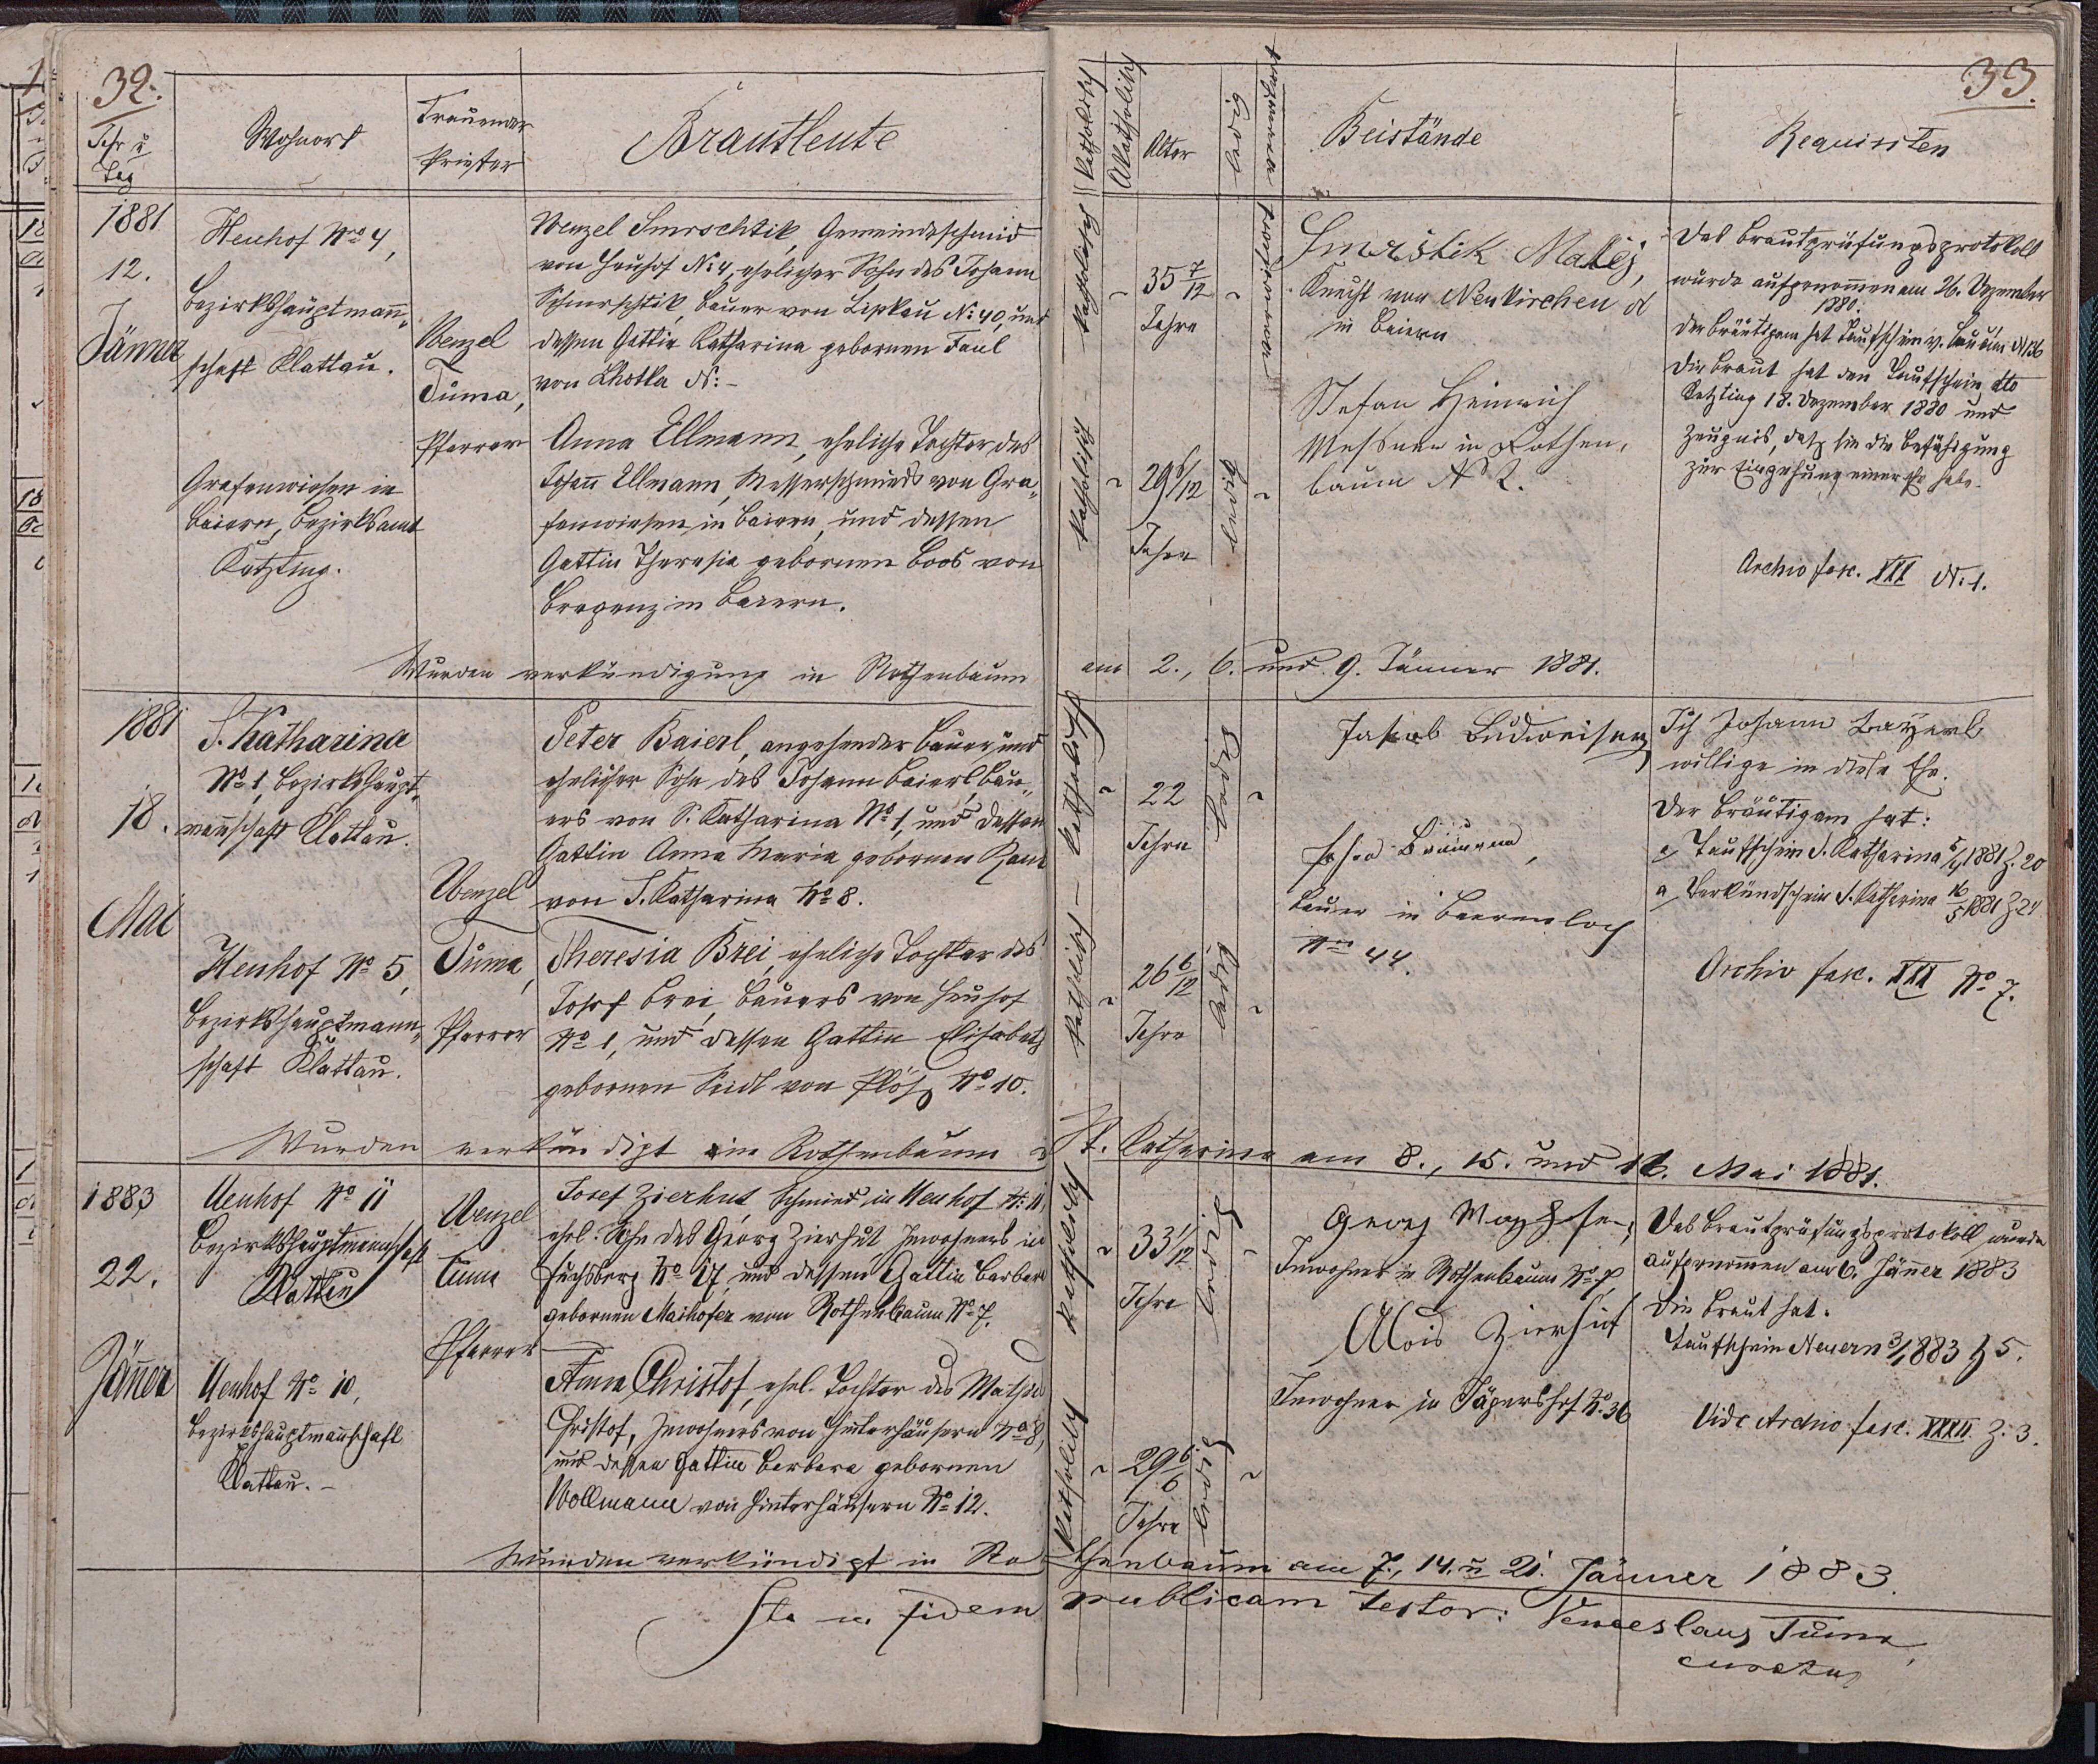 32.
Jahr u
Tag
Wohnort
Trauender
Priester
Brautleute
1881
12.
Jänner
Heuhof Nro 4,
Bezirkshauptmann-
schaft Klattau.
Grafenwiesen in
Baiern, Bezirksamt
Kötzting.
Wenzel
Tuma,
Pfarrer
Wenzel Smrschtik, Gemeindeschmid
von Heuhof N: 4, ehelicher Sohn des Johann
Schmrschtik, Bauer von Lipkau N: 40, und
dessen Gattin Katharina gebornen Faul
von Lhotka N: –
Anna Ellmann, eheliche Tochter des
Johann Ellmann, Messerschmieds von Gra-
fenwiesen in Baiern, und dessen
Gattin Theresia gebornen Boos von
Bregenz in Baiern.
Wurden verkündigung in Rothenbaum
1881
18.
Mai
S. Katharina
No 1, Bezirkshaupt-
mannschaft Klattau.
Heuhof No 5,
Bezirkshauptmann-
schaft Klattau.
Wenzel
Tuma,
Pfarrer
Peter Baierl, angehender Bauer und
ehelicher Sohn des Johann Baierl Bau-
ers von S. Katharina No 1, und dessen
Gattin Anna Maria gebornen
von S. Katharina No 8.
Theresia Brei, eheliche Tochter des
Josef Brei, Bauers von Heuhof
No 1, und dessen Gattin Elisabeth
gebornen Seidl von Flöß No 10.
Wurden verkündigt in Rothenbaum
1883
22.
Jänner
Neuhof No 11
Bezirkshauptmannschaft
Klattau
Neuhof No 10,
Bezirkshauptmannschaft
Klattau. –
Wenzel
Tuma
Pfarrer
Josef Zierhut, Schmied in Neuhof N: 11,
ehel. Sohn des Georg Zierhut, Inwohners in
Fuchsberg No 17, und dessen Gattin Barbara
gebornen Maihofer von Rothenbaum No 7.
Anna Christof, ehel. Tochter des Mathias
Christof, Inwohners von Hinterhäusern No 8,
und dessen Gattin Barbara gebornen
Wollmann von Hinterhäusern No 12.
Wurden verkündigt in Ro
Ita in fidem
33.
katholisch
Akatholisch
Alter
ledig
verwittwet
Beistände
Requisiten
katholisch
35 7/12
Jahre
Smrštik Matěj,
Knecht von Neukirchen
in Baiern
Das Brautprüfungsprotokoll
wurde aufgenommen am 26. Dezember
1880.
Die Braut hat den Taufschein dto
Kötzting 18. Dezember 1880 und
Zeugnis, daß sie die Befähigung
zur Eingehung einer Ehe habe.
katholisch
29
Jahre
ledig
Stefan Heinrich
Messner in Rothen-
baum N 2.
Archiv fasc. XXX N: 1.
am 2., 6. und 9. Jänner 1881.
katholisch
22
Jahre
ledig
Jakob Ludweiser
Ich Johann Bayerl
willige in diese Ehe.
Der Bräutigam hat:
Taufschein S. Katharina 5/4 1881 Z. 20
Verkündschein S. Katharina 16/5 1881 Z 24
katholisch
26 6/12
Jahre
ledig
Bauer in Baerenloch
Nro 44.
Archiv fasc. XXX No 7.
St. Katharina am 8., 15. und 16. Mai 1881.
katholisch
33 1/12
Jahre
ledig
Georg
Inwohner in Rothenbaum No 7
Das Brautprüfungsprotokoll wurde
aufgenommen am 6. Jänner 1883
Die Braut hat:
Taufschein Neuern 3/1 883 Z 5.
katholisch
29
Jahre
ledig
Alois Zierhut
Inwohner in Jägershof N: 36
Vide Archiv fasc. XXXII. Z: 3.
thenbaum am 7., 14. u 21. Jänner 1883.
publicam testor: Venceslaus Tuma,
curatus